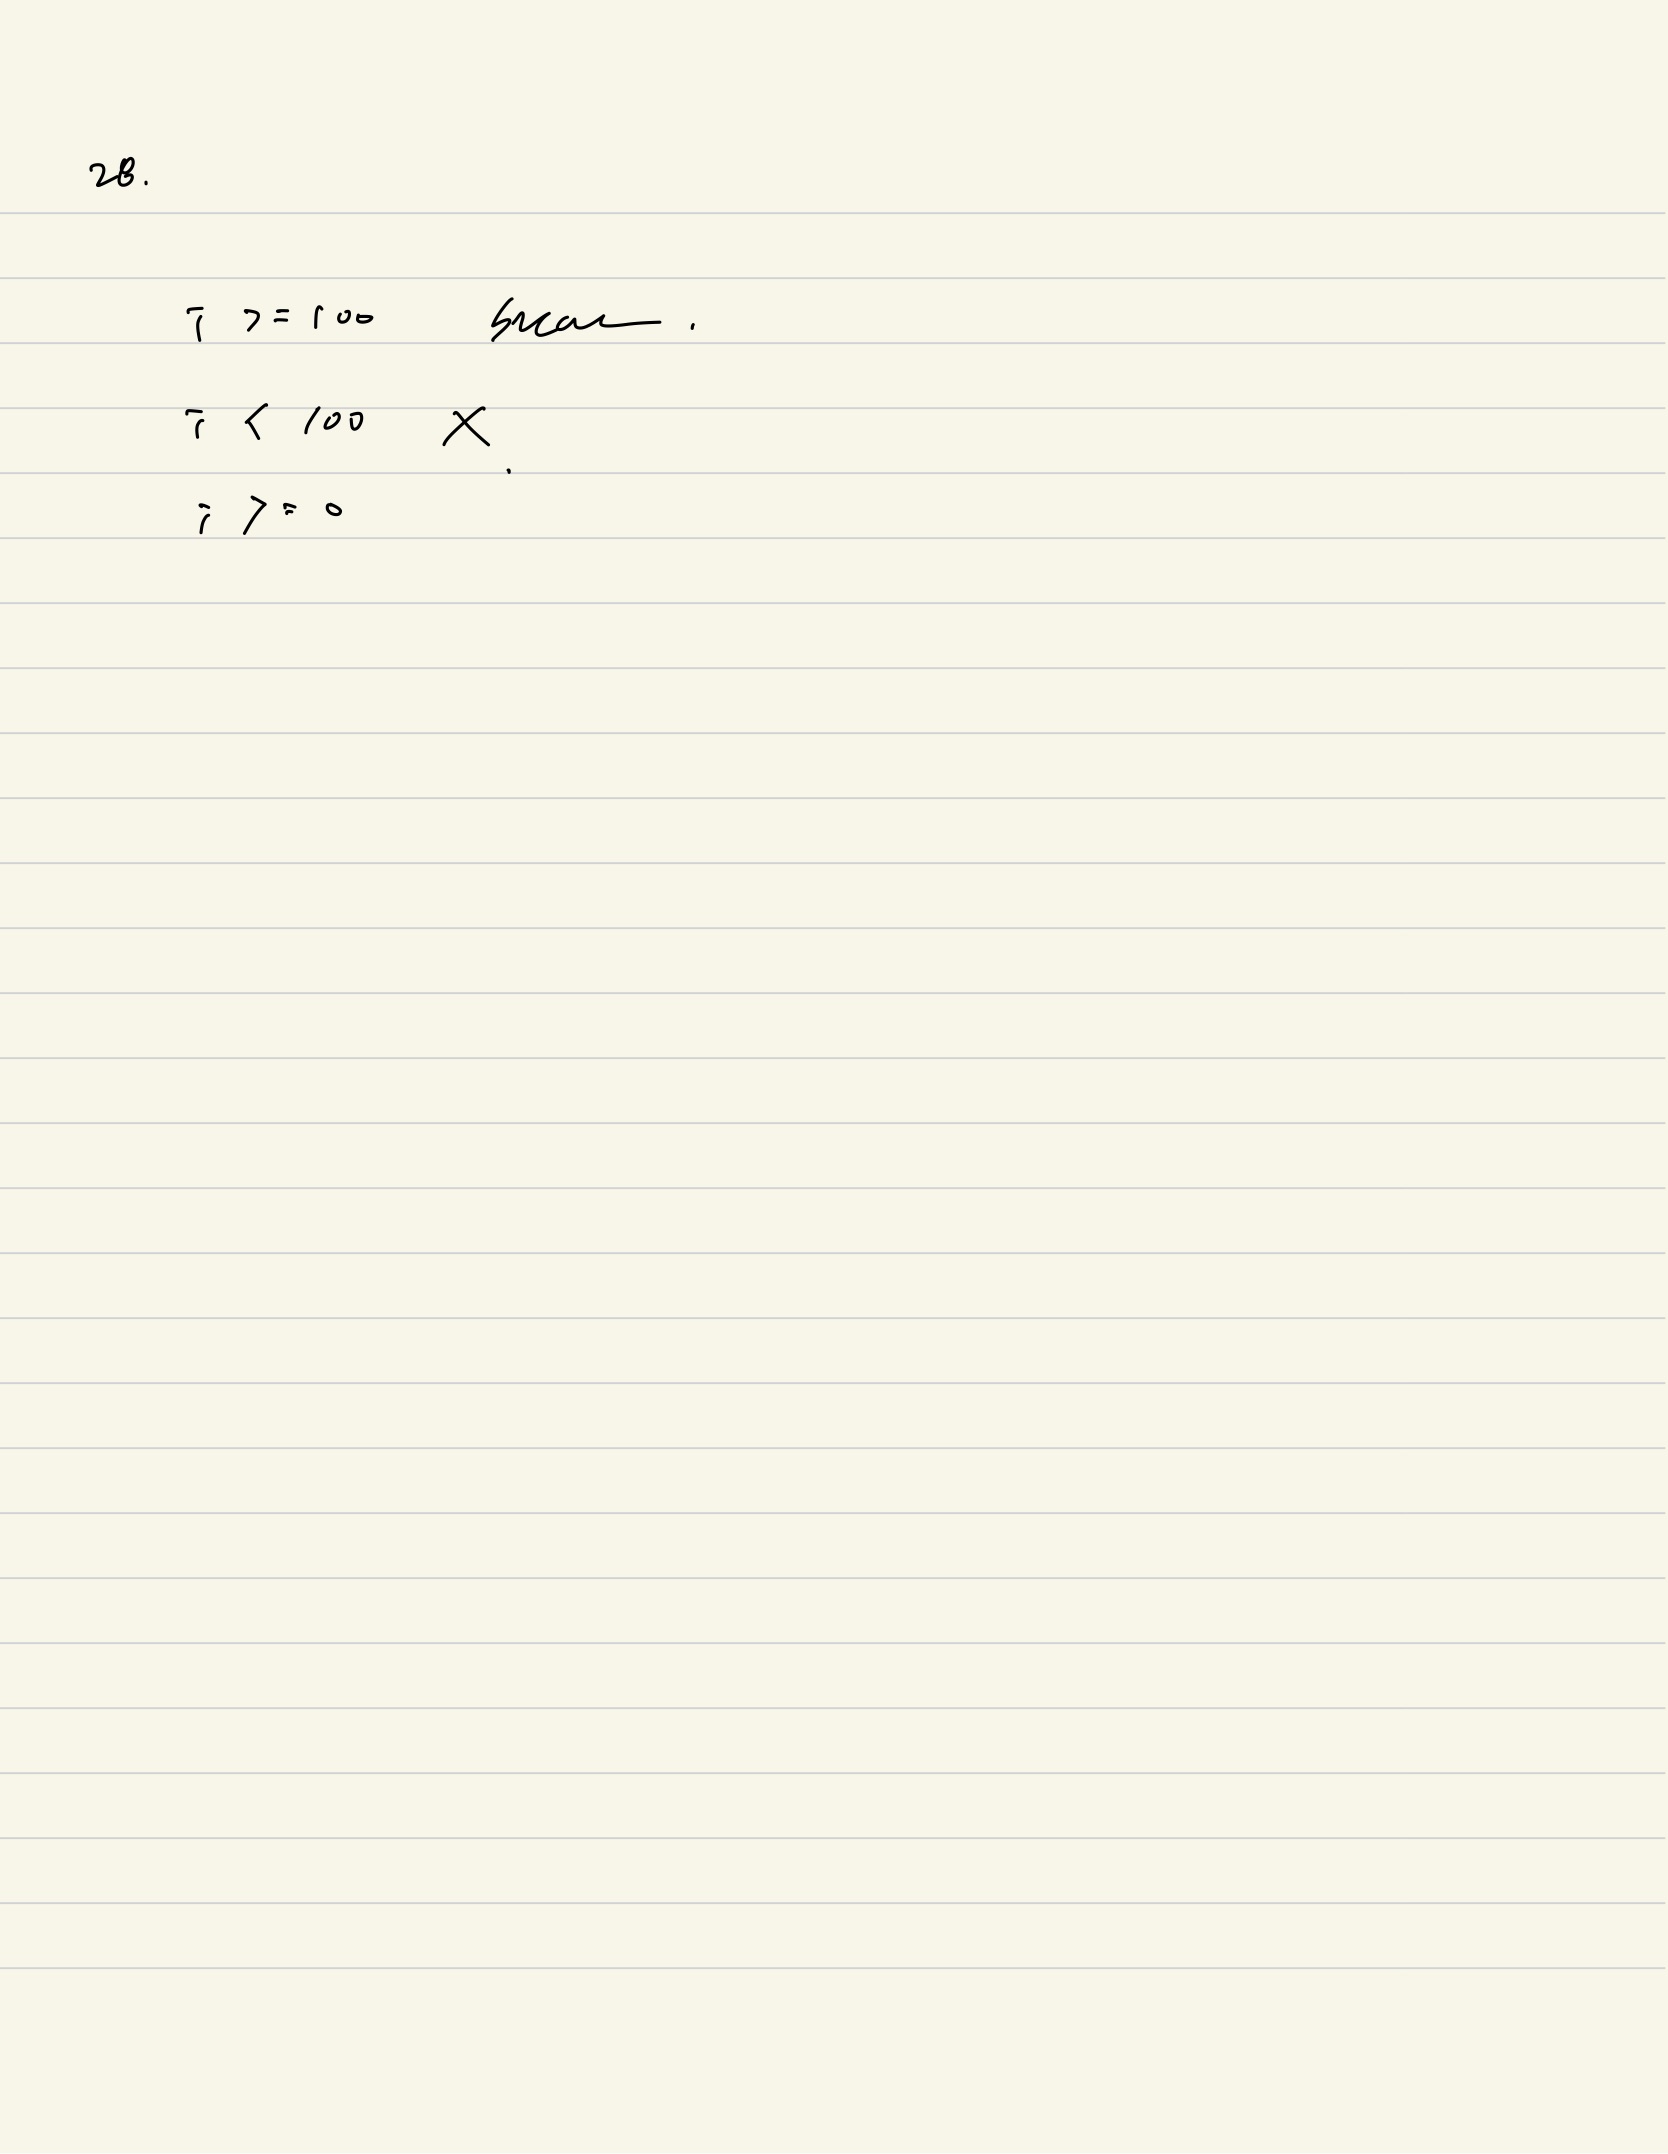 28.
i >= 100 break.
i < 100 X.
i >= 0